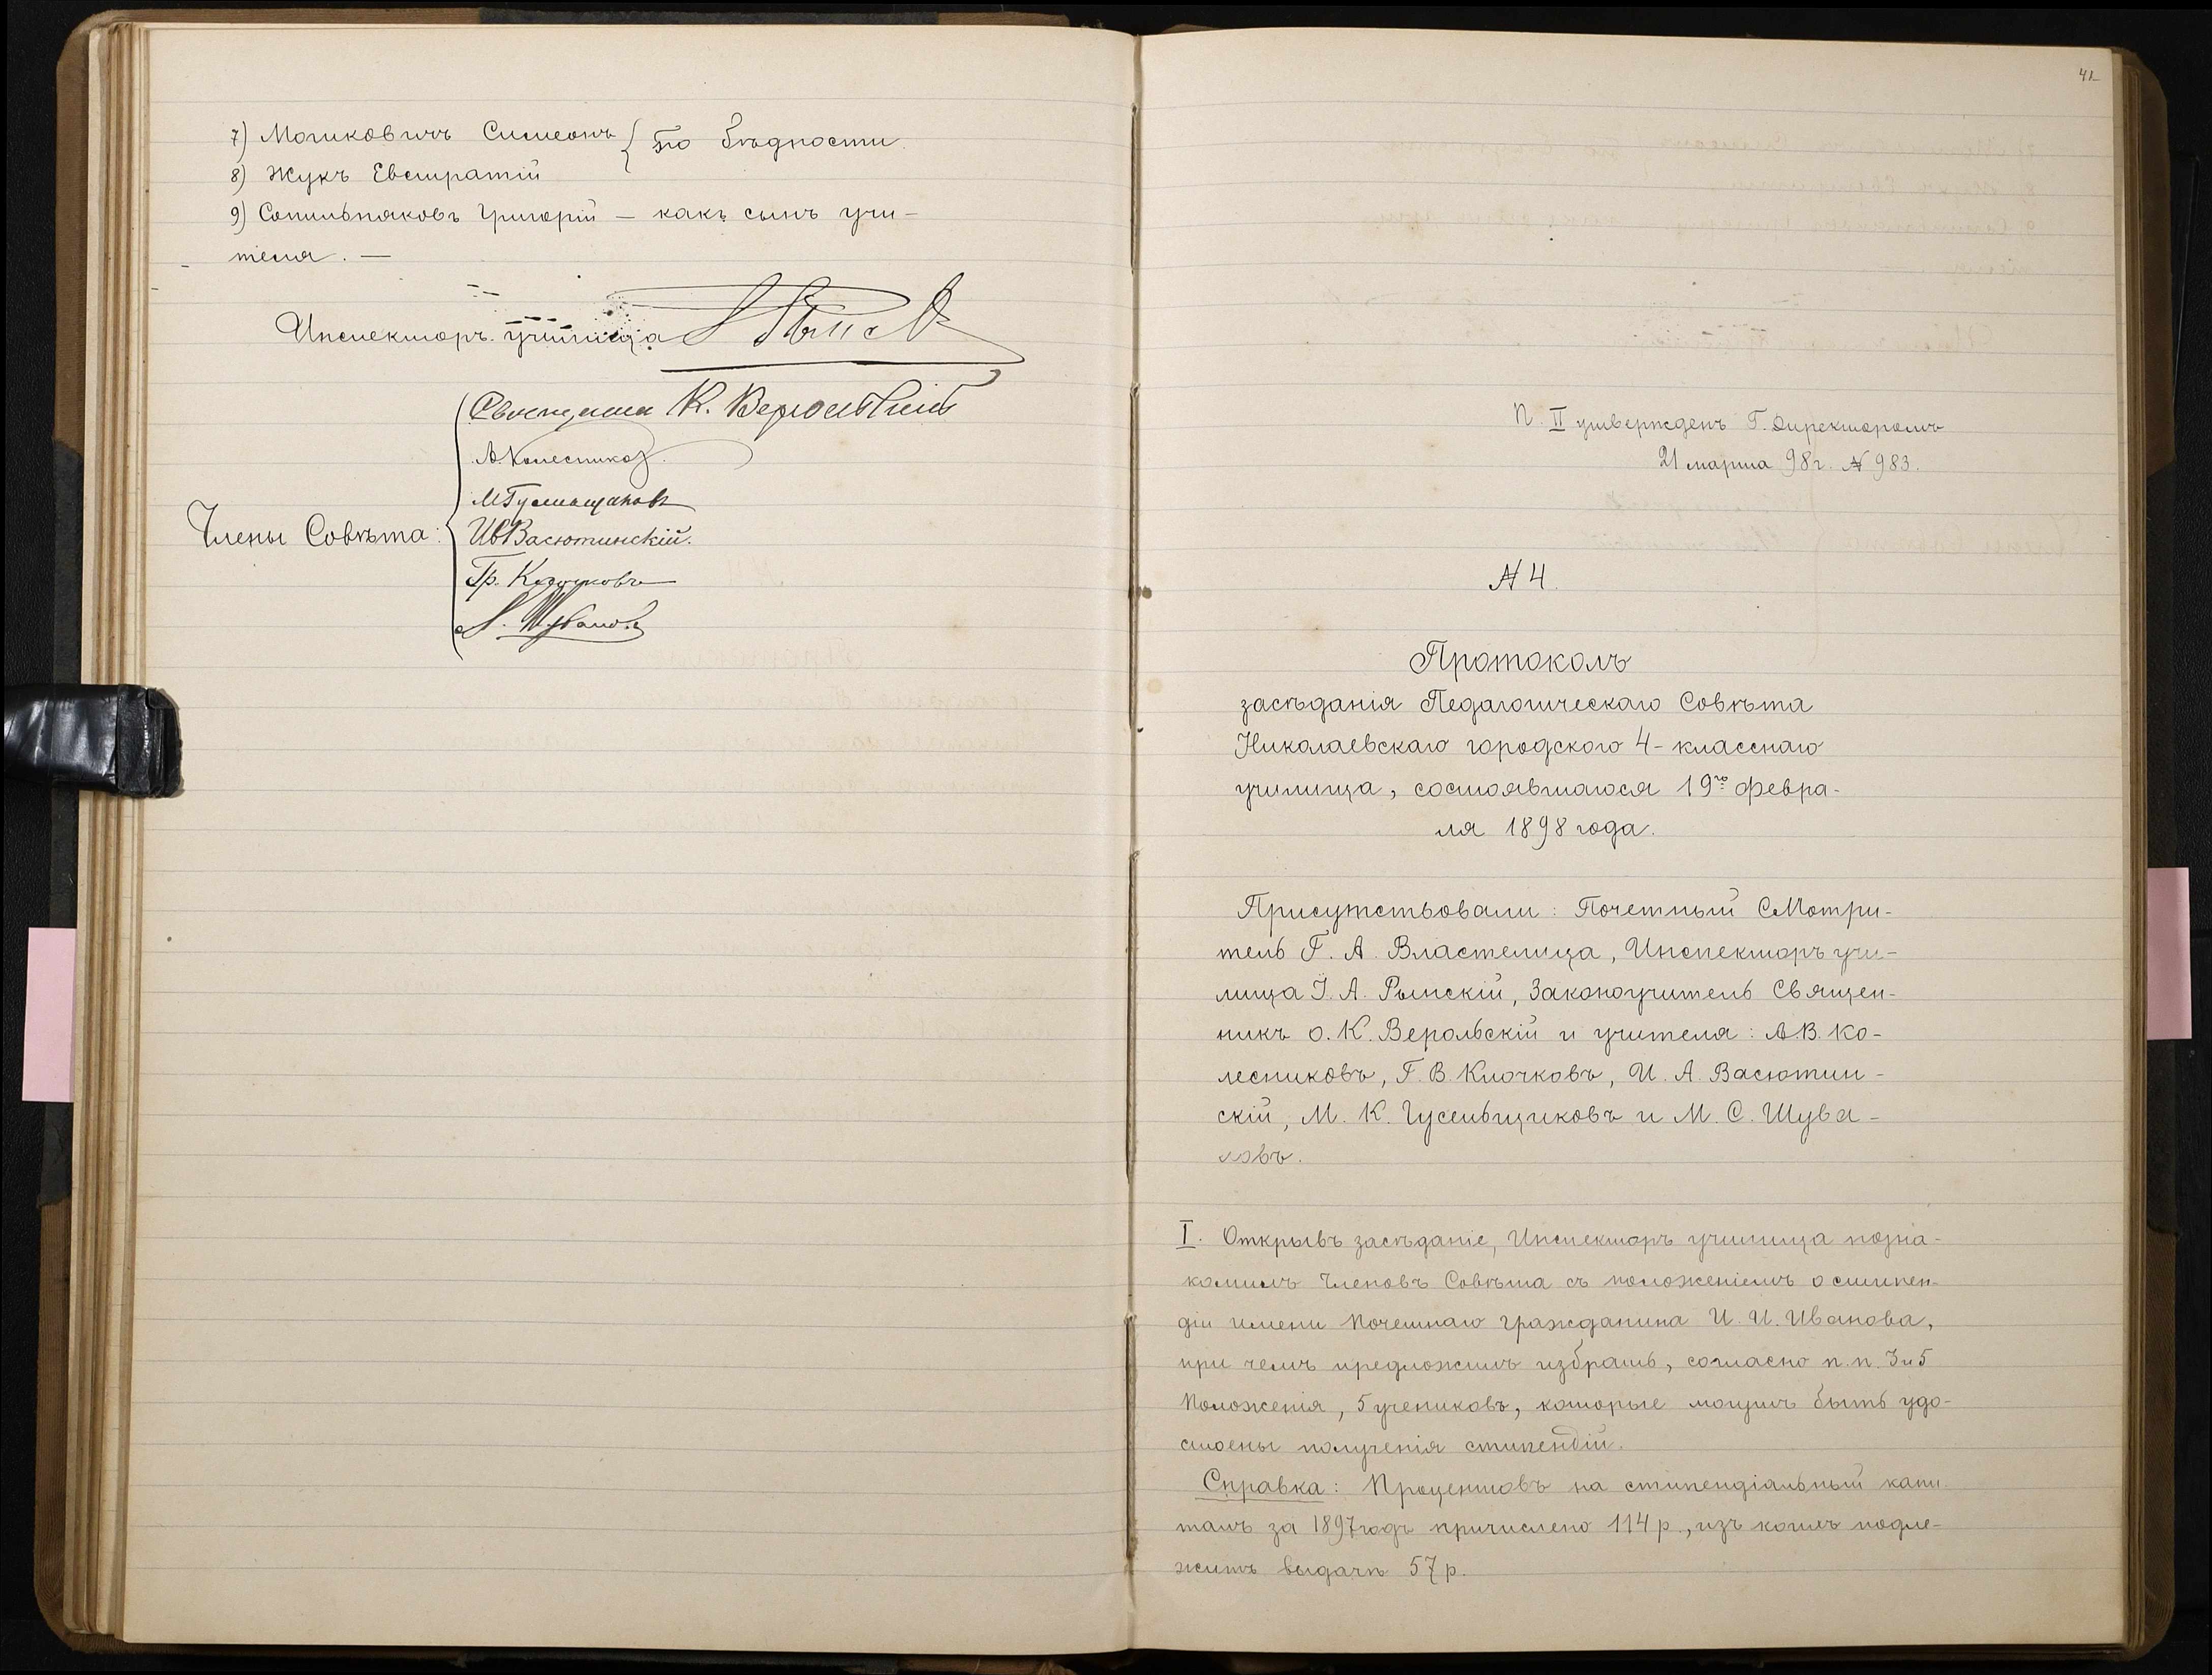 7) Мошковичъ Симеонъ { по бѣдности.
8) Жукъ Евстратій
9) Сопильняковъ Григорій — какъ сынъ учи-
теля. —
Инспекторъ училища
Священникъ К. Верольскій
А. Колесниковъ
М Гусельщиковъ
Члены Совѣта:
Ив Васютинскій.
Гр. Клочковъ
41
П. II утвержденъ Г. Директоромъ
21 марта 98 г. № 983.
№ 4.
Протоколъ
засѣданія Педагогическаго Совѣта
Николаевскаго городского 4-класснаго
училища, состоявшагося 19го февра-
ля 1898 года.
Присутствовали: Почетный Смотри-
тель Г. А. Властелица, Инспекторъ учи-
лища І. А. Рынскій, Законоучитель Священ-
никъ о. К. Верольскій и учителя: А. В. Ко-
лесниковъ, Г. В. Клочковъ, И. А. Васютин-
скій, М. К. Гусельщиковъ и М. С. Шува-
ловъ.
I. Открывъ засѣданіе, Инспекторъ училища позна-
комилъ Членовъ Совѣта съ положеніемъ о стипен-
діи имени Почетнаго Гражданина И. И. Иванова,
при чемъ предложилъ избрать, согласно п.п. 3 и 5
Положенія, 5 учениковъ, которые могутъ быть удо-
стоены полученія стипендій.
Справка: Процентовъ на стипендіальный капи-
талъ за 1897 годъ причислено 114 р., изъ коихъ подле-
житъ выдачѣ 57 р.